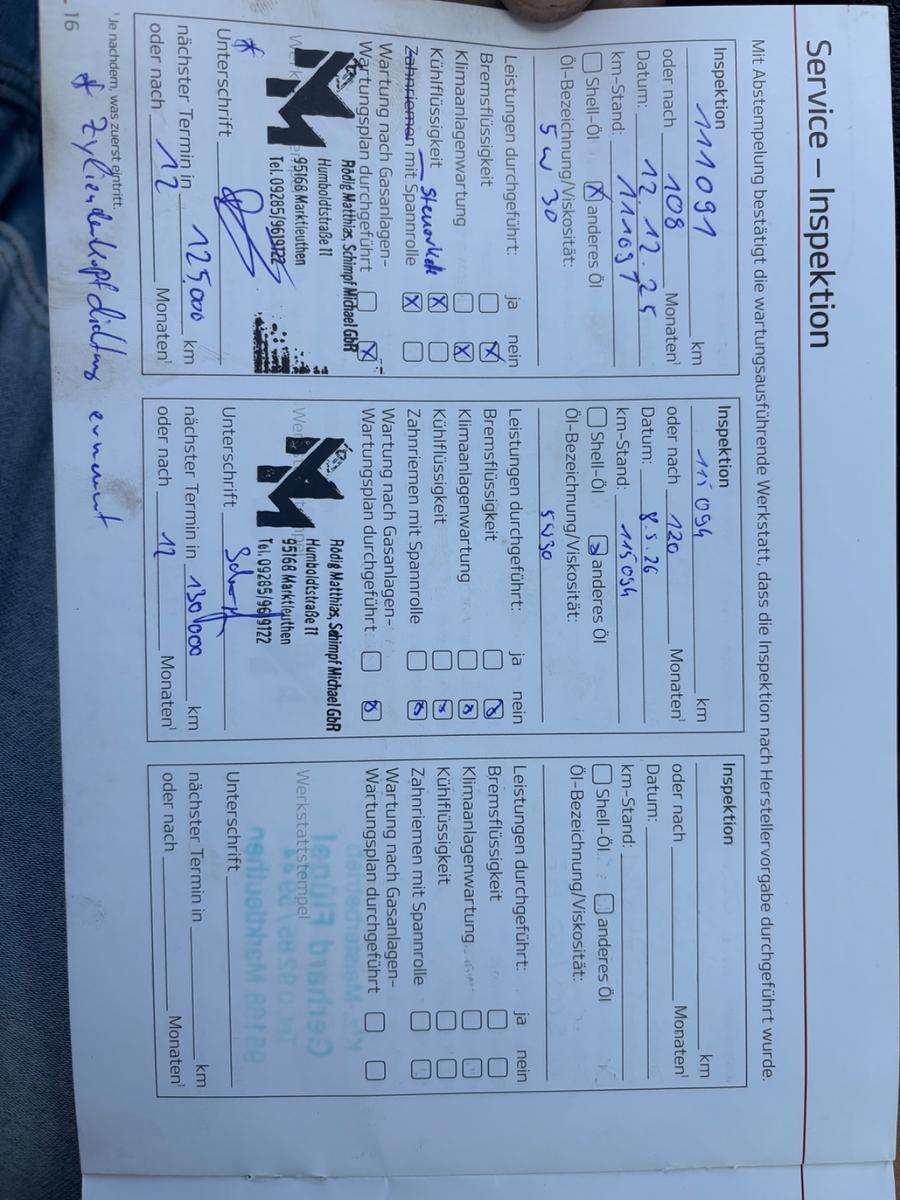 Service – Inspektion
Mit Abstempelung bestätigt die wartungsausführende Werkstatt, dass die Inspektion nach Herstellervorgabe durchgeführt wurde.
Inspektion
111091 km
oder nach 108 Monaten¹
Datum: 12.12.25
km-Stand: 111091
Shell-Öl X anderes Öl
Öl-Bezeichnung/Viskosität:
5W30
Leistungen durchgeführt: ja nein
Bremsflüssigkeit X
Klimaanlagenwartung X
Kühlflüssigkeit X
Zahnriemen mit Spannrolle X
Wartung nach Gasanlagen-
Wartungsplan durchgeführt X
Rödig Matthias, Schimpf Michael GbR
Humboldtstraße 11
95168 Marktleuthen
Tel. 09285/9619122
*
Unterschrift
nächster Termin in 125.000 km
oder nach 12 Monaten¹
Inspektion
115094 km
oder nach 120 Monaten¹
Datum: 8.5.26
km-Stand: 115094
Shell-Öl anderes Öl
Öl-Bezeichnung/Viskosität:
5W30
Leistungen durchgeführt: ja nein
Bremsflüssigkeit X
Klimaanlagenwartung X
Kühlflüssigkeit X
Zahnriemen mit Spannrolle X
Wartung nach Gasanlagen-
Wartungsplan durchgeführt X
Rödig Matthias, Schimpf Michael GbR
Humboldtstraße 11
95168 Marktleuthen
Tel. 09285/9619122
Unterschrift
nächster Termin in 130000 km
oder nach 12 Monaten¹
Inspektion
km
oder nach Monaten¹
Datum:
km-Stand:
Shell-Öl anderes Öl
Öl-Bezeichnung/Viskosität:
Leistungen durchgeführt: ja nein
Bremsflüssigkeit
Klimaanlagenwartung
Kühlflüssigkeit
Zahnriemen mit Spannrolle
Wartung nach Gasanlagen-
Wartungsplan durchgeführt
Werkstattstempel
Unterschrift
nächster Termin in km
oder nach Monaten¹
¹Je nachdem, was zuerst eintritt.
16
* Zylinderkopfdichtung erneuert